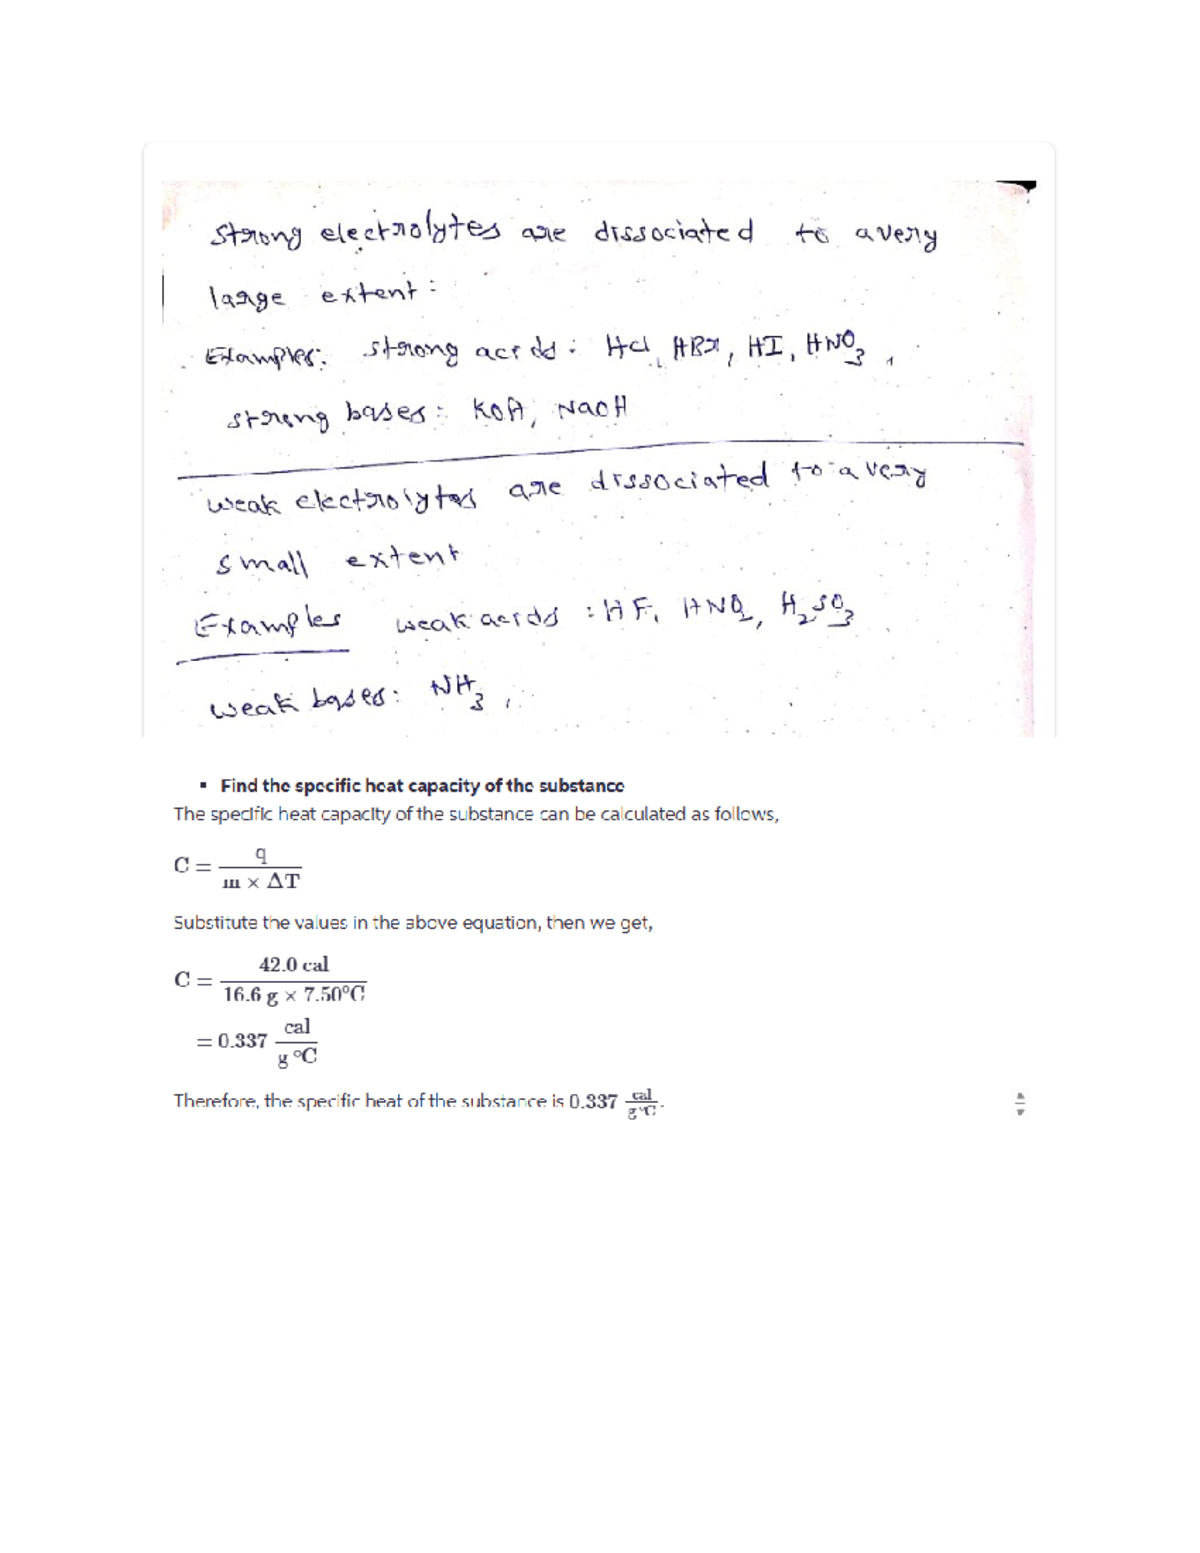 Strong electrolytes are dissociated to a very
large extent:
Examples: strong acids: HCl, HBr, HI, HNO3,
strong bases: KOH, NaOH
weak electrolytes are dissociated to a very
small extent
Examples weak acids : HF, HNO2, H2SO3
weak bases: NH3,
▪ Find the specific heat capacity of the substance
The specific heat capacity of the substance can be calculated as follows,
C = q / (m × ΔT)
Substitute the values in the above equation, then we get,
C = 42.0 cal / (16.6 g × 7.50°C)
= 0.337 cal / (g °C)
Therefore, the specific heat of the substance is 0.337 cal / (g °C).